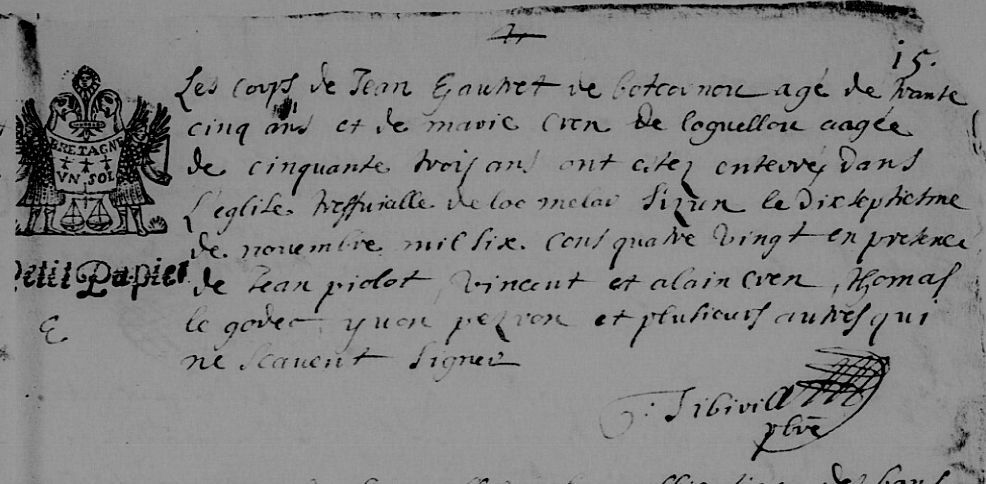 15.
BRETAGNE
VN SOL
Petit Papier
Les corps de Jean Gautret de botcornou agé de trante
cinq ans et de marie Cren de loguellou aagée
de cinquante trois ans ont estez enterrez dans
L'eglise treffvialle de loc melar Sizun le dixseptiesme
de novembre mil six. cents quatre vingt en presence
de Jean piolot, Vincent et alain Cren, thomas
le godec yvon pezron et plusieurs autres qui
ne scavent signer
pbre